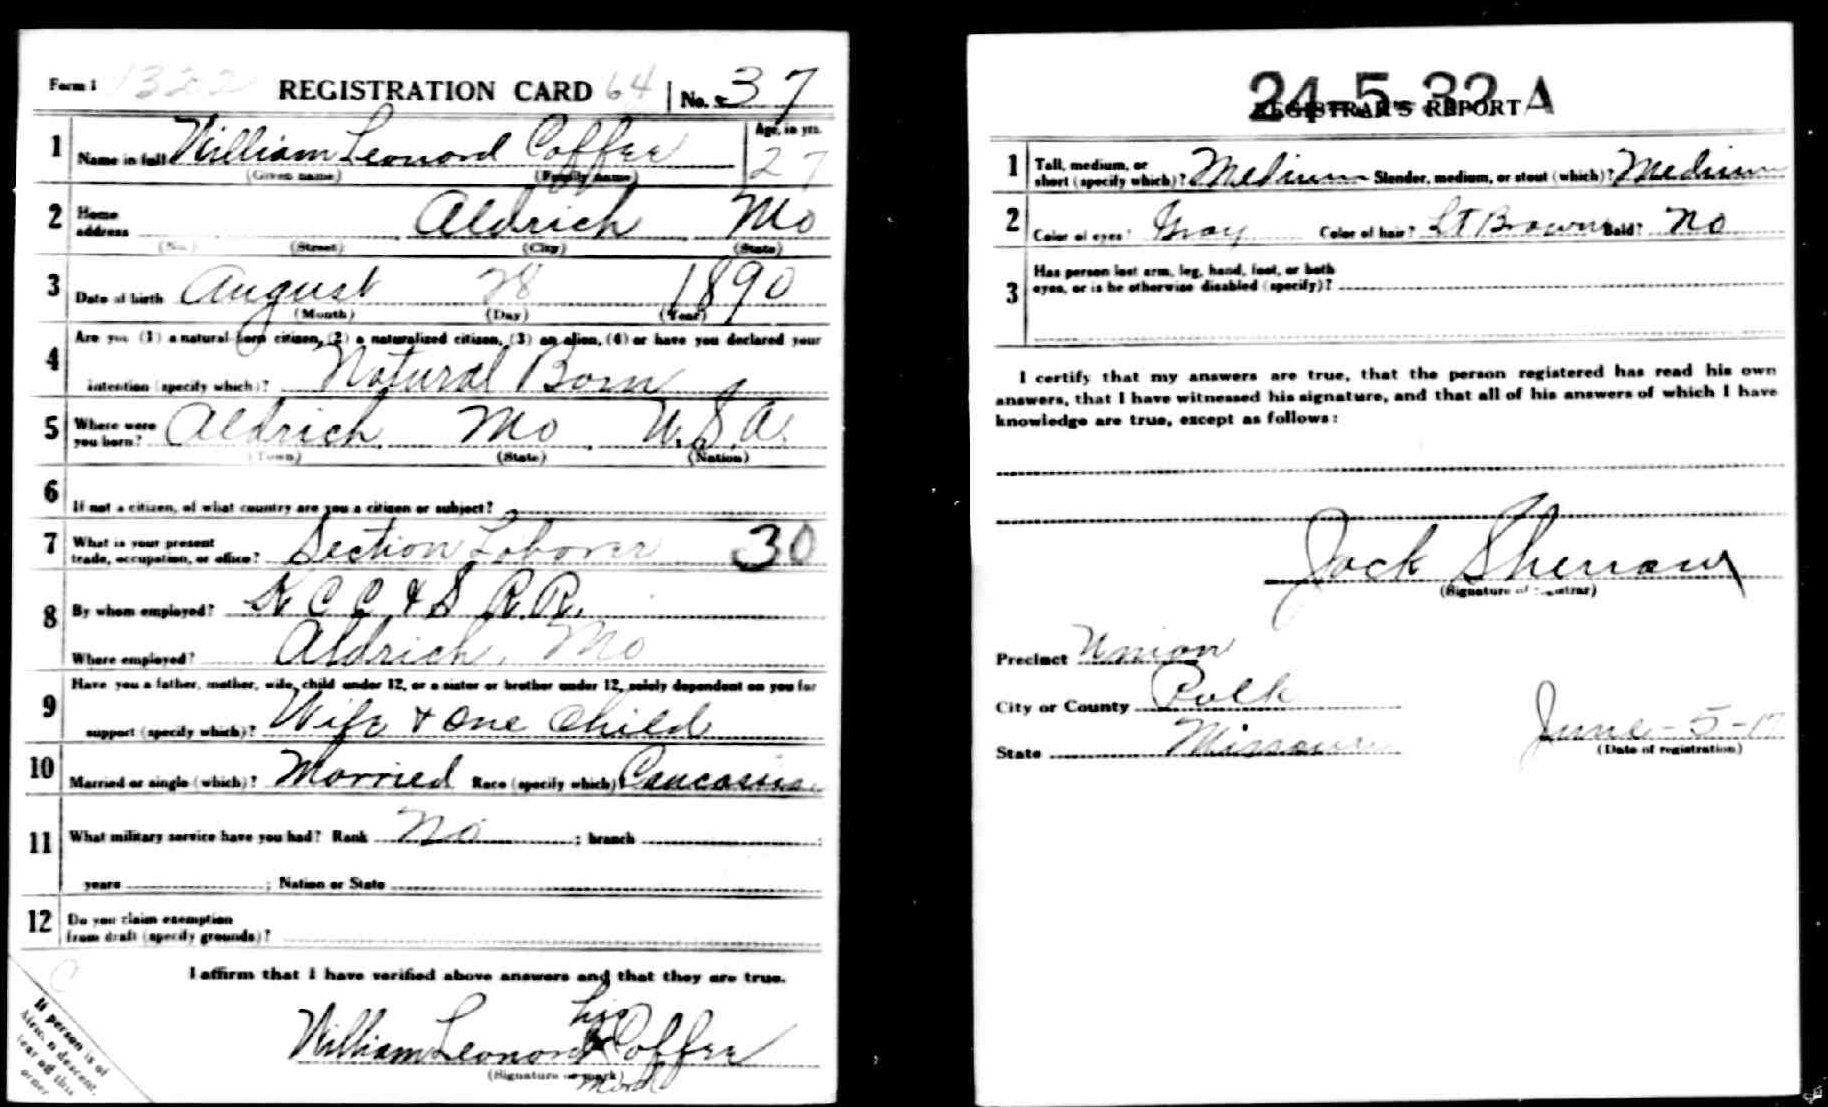 Form 1 1322 REGISTRATION CARD 64 No. 37
1 Name in full William Leonard Coffee Age, in yrs. 27
(Given name) (Family name)
2 Home address Aldrich Mo
(No.) (Street) (City) (State)
3 Date of birth August 28 1890
(Month) (Day) (Year)
4 Are you (1) a natural-born citizen, (2) a naturalized citizen, (3) an alien, (4) or have you declared your
intention (specify which)? Natural Born
5 Where were you born? Aldrich Mo U.S.A.
(Town) (State) (Nation)
6 If not a citizen, of what country are you a citizen or subject?
7 What is your present
trade, occupation, or office? Section Laborer 30
8 By whom employed? K C C & S R.R.
Where employed? Aldrich, Mo
9 Have you a father, mother, wife, child under 12, or a sister or brother under 12, solely dependent on you for
support (specify which)? Wife & one child
10 Married or single (which)? Married Race (specify which)? Caucasian
11 What military service have you had? Rank No ; branch ;
years ; Nation or State
12 Do you claim exemption
from draft (specify grounds)?
I affirm that I have verified above answers and that they are true.
his
William Leonard x Coffee
(Signature or mark) mark
If person is of
African descent,
tear off this
corner
24-5-32 A
REGISTRAR'S REPORT
1 Tall, medium, or
short (specify which)? Medium Slender, medium, or stout (which)? Medium
2 Color of eyes? Gray Color of hair? Lt Brown Bald? No
3 Has person lost arm, leg, hand, foot, or both
eyes, or is he otherwise disabled (specify)?
I certify that my answers are true, that the person registered has read his own
answers, that I have witnessed his signature, and that all of his answers of which I have
knowledge are true, except as follows:
Jack Sherrow
(Signature of registrar)
Precinct Union
City or County Polk
State Missouri June-5-17
(Date of registration)